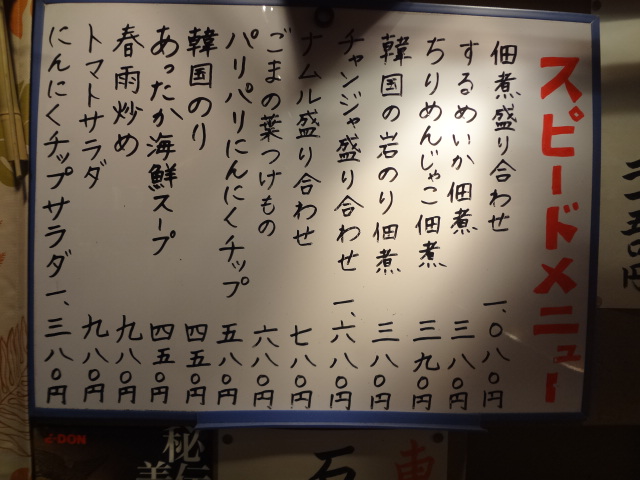 スピードメニュー
佃煮盛り合わせ 一、〇八〇円
するめいか佃煮 三八〇円
ちりめんじゃこ佃煮 三九〇円
韓国の岩のり佃煮 三八〇円
チャンジャ盛り合わせ 一、六八〇円
ナムル盛り合わせ 七八〇円
ごまの葉つけもの 六八〇円
パリパリにんにくチップ 五八〇円
韓国のり 四五〇円
あったか海鮮スープ 四五〇円
春雨炒め 九八〇円
トマトサラダ 九八〇円
にんにくチップサラダ 一、三八〇円
Z-DON
秘伝